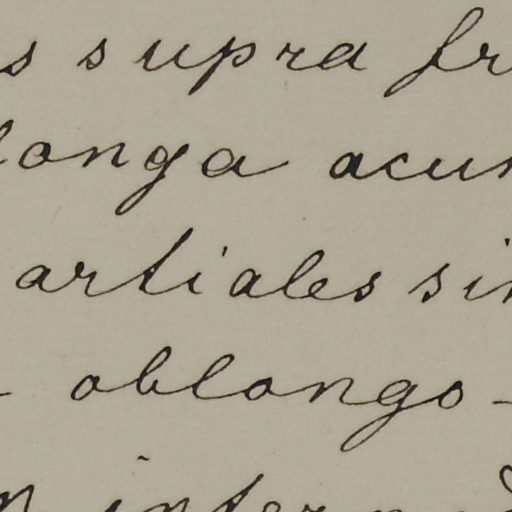 s supra fr
longa acu
artiales si
- oblongo-
n inter